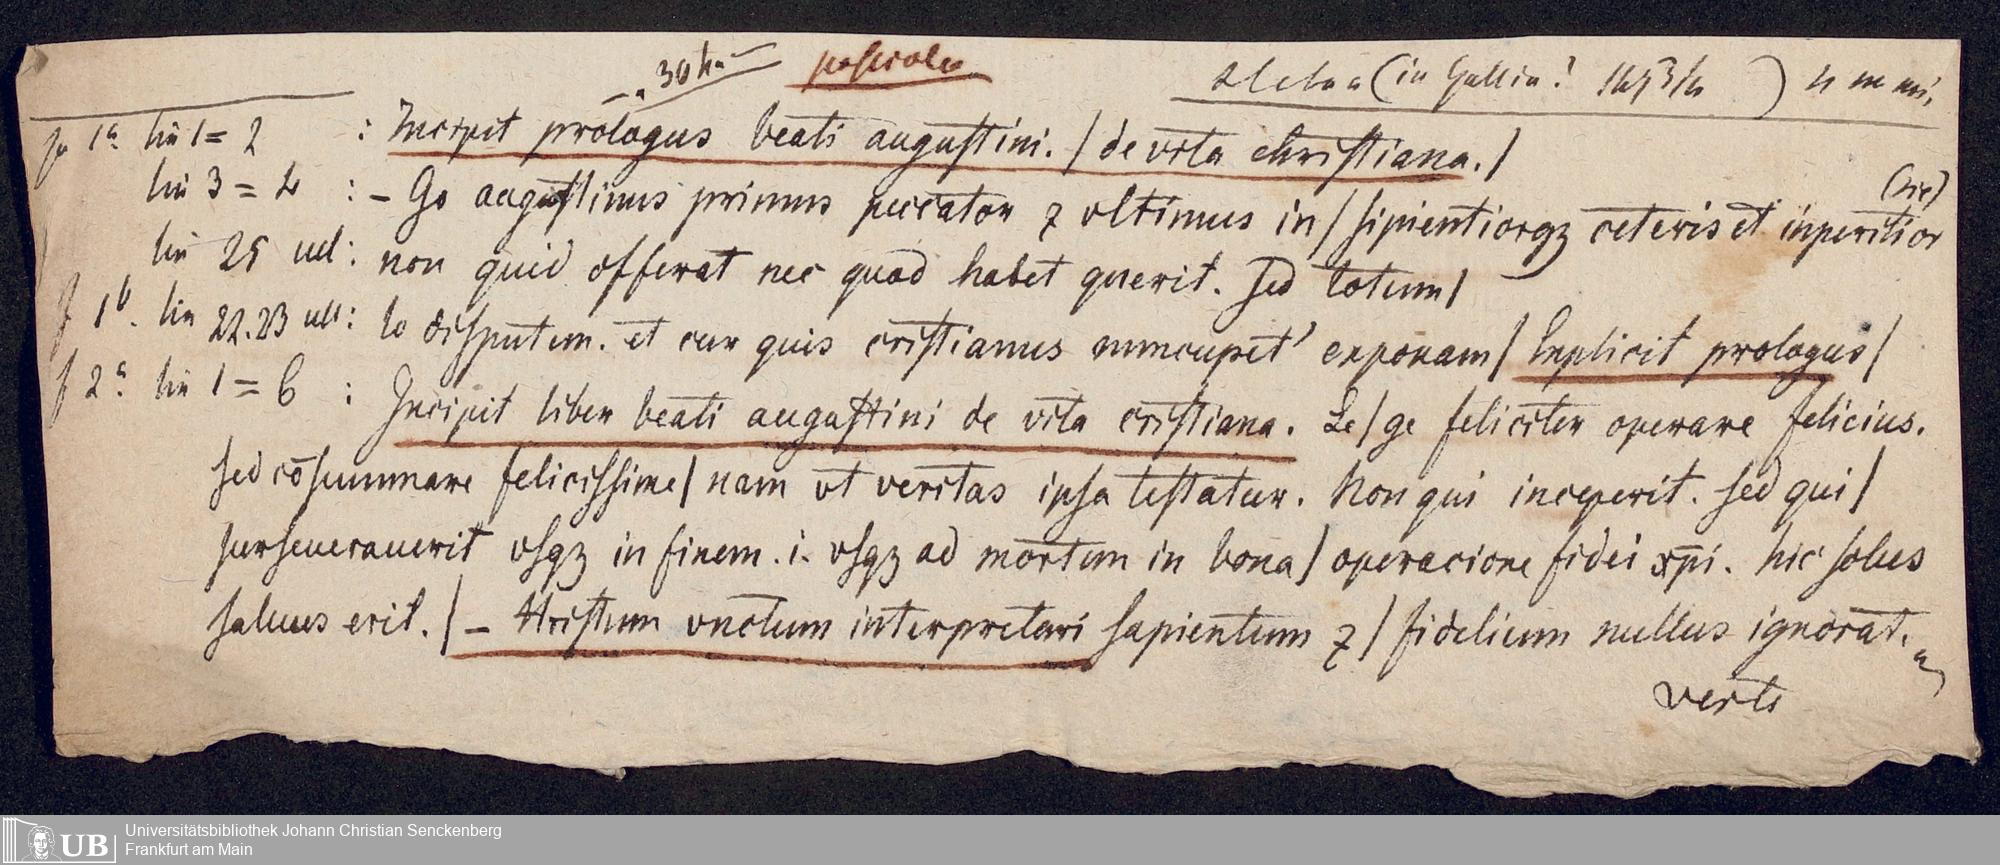 fo 1a lin 1 = 2 : Incipit prologus beati augustini. / de vita christiana. /
lin 3 = 4 : – Go augustinus primus peccator ⁊ vltimus in / sipientiorqꝫ ceteris et inperitior (sic)
lin 25 ult: non quid offerat nec quod habet querit. Sed totum /
f 1b. lin 22.23 ult: lo disputem. et cur quis cristianus nuncupet' exponam / Explicit prologus /
f 2a lin 1 = 6 : Incipit liber beati augustini de vita cristiana. Le / ge feliciter operare felicius.
sed cōsummare felicissime / nam vt veritas ipsa testatur. Non qui inceperit. sed qui /
perseuerauerit vsqꝫ in finem .i. vsqꝫ ad mortem in bona / operacione fidei xp̄i. hic solus
saluus erit. / – Hristum vnctum interpretari sapientum ⁊ / fidelium nullus ignorat.
verte
UB Universitätsbibliothek Johann Christian Senckenberg
Frankfurt am Main